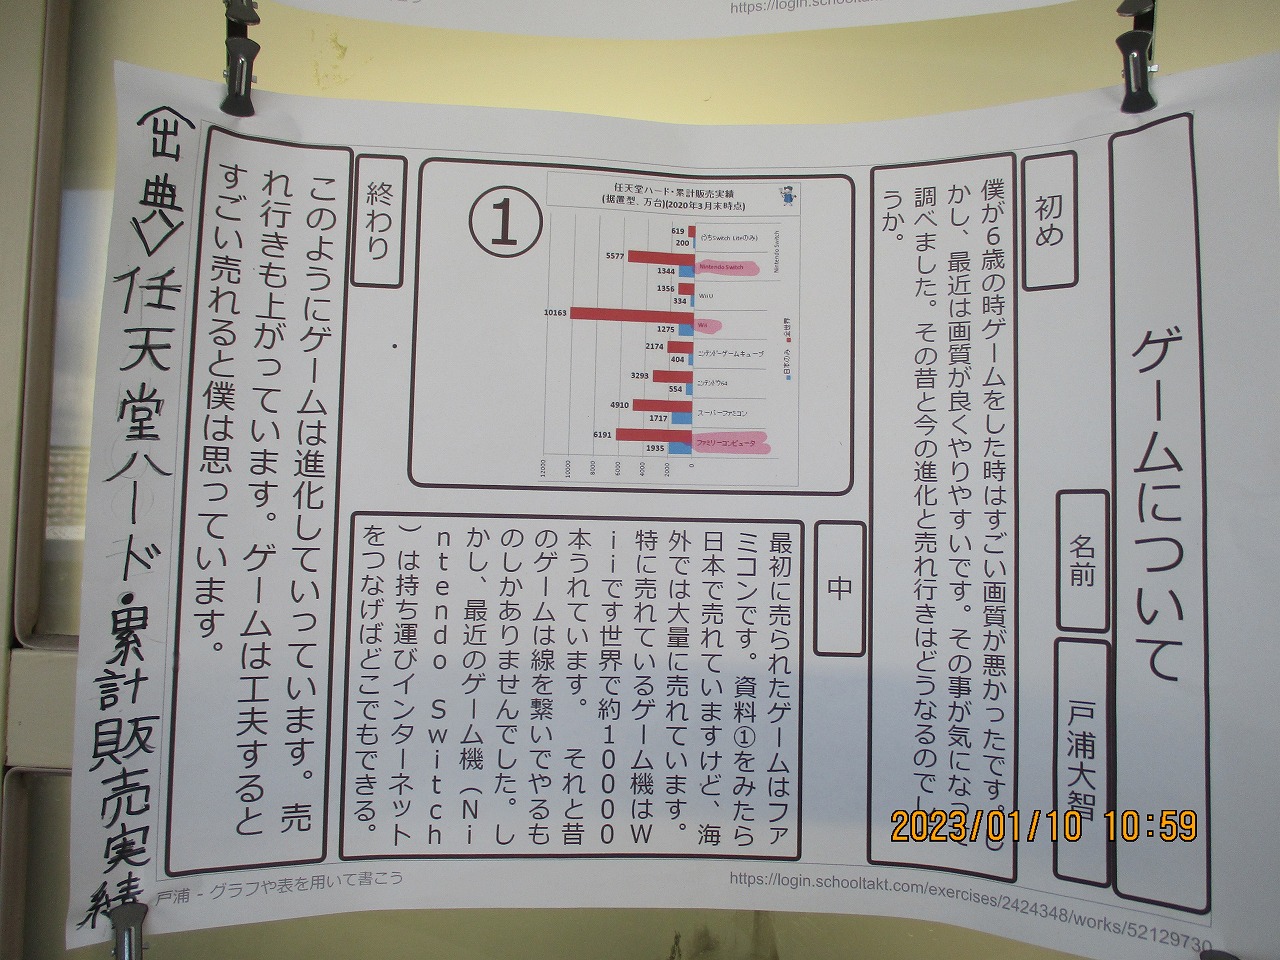 https://login.schooltakt
ゲームについて
名前
戸浦大智
初め
僕が6歳の時ゲームをした時はすごい画質が悪かったです。し
かし、最近は画質が良くやりやすいです。その事が気になって
調べました。その昔と今の進化と売れ行きはどうなるのでし
うか。
中
最初に売られたゲームはファ
ミコンです。資料①をみたら
日本で売れていますけど、海
外では大量に売れています。
特に売れているゲーム機はW
iiです世界で約10000
本うれています。　それと昔
のゲームは線を繋いでやるも
のしかありませんでした。し
かし、最近のゲーム機（Ni
ntendo Switch
）は持ち運びインターネット
をつなげばどこでもできる。
①
任天堂ハード・累計販売実績
(据置型、万台)(2020年3月末時点)
619
200
(うちSwitch Liteのみ)
Nintendo Switch
5577
1344
Nintendo Switch
1356
334
Wii U
10163
1275
Wii
2174
404
ニンテンドーゲームキューブ
3293
554
ニンテンドウ64
4910
1717
スーパーファミコン
6191
1935
ファミリーコンピュータ
■全世界
■日本のみ
12000
10000
8000
6000
4000
2000
0
終わり
このようにゲームは進化していっています。売
れ行きも上がっています。ゲームは工夫すると
すごい売れると僕は思っています。
〈出典〉任天堂ハード・累計販売実績
戸浦 - グラフや表を用いて書こう
https://login.schooltakt.com/exercises/2424348/works/52129730
2023/01/10 10:59